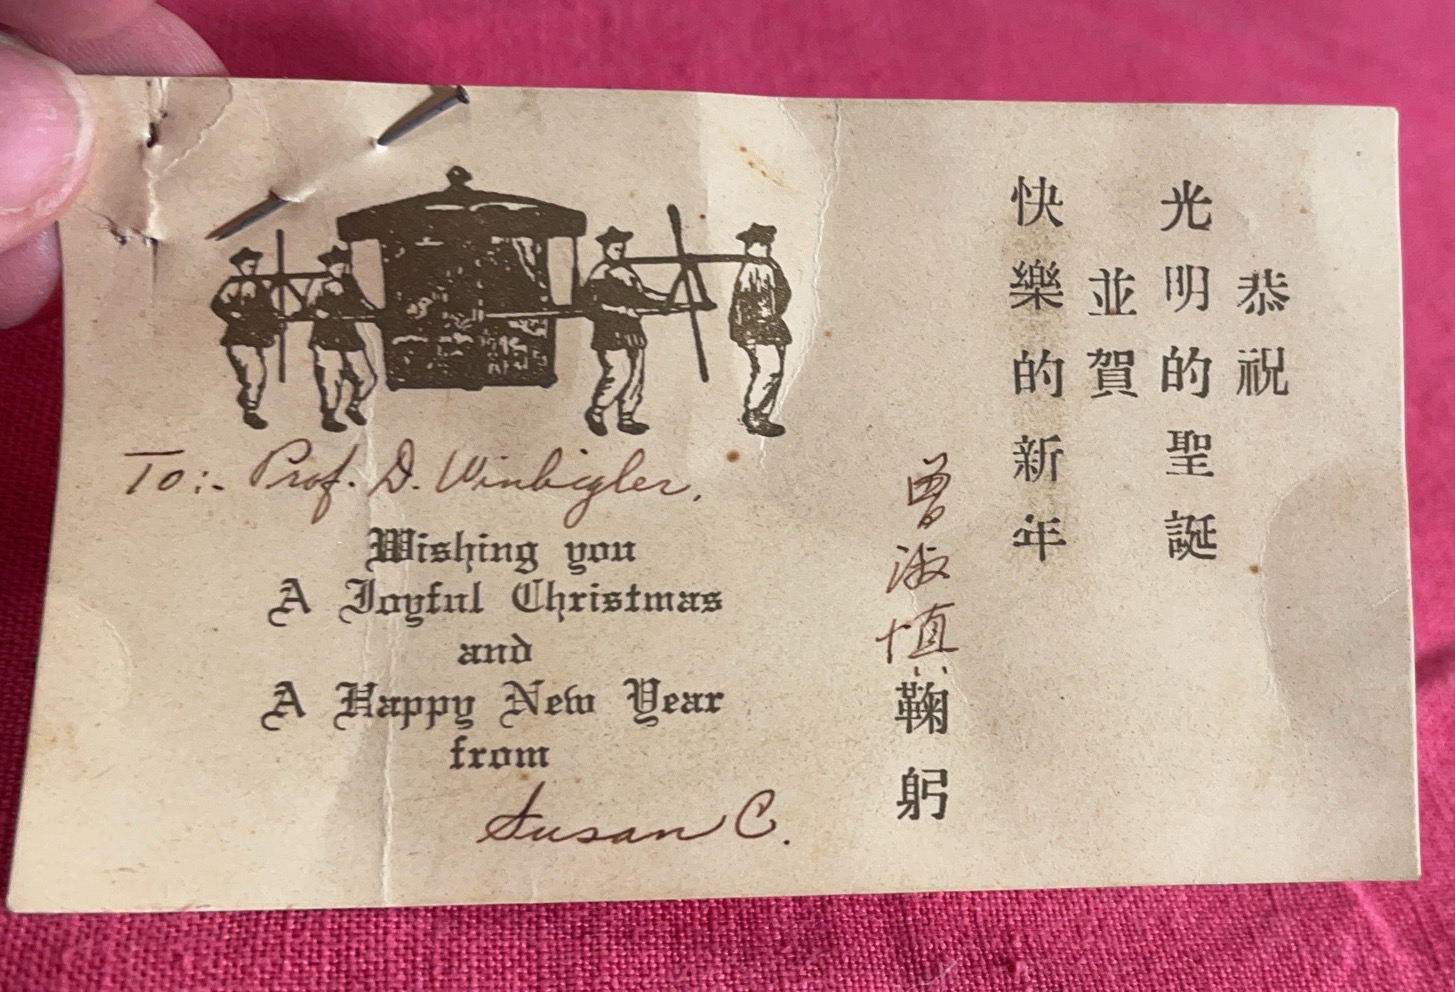 To:- Prof. D. Winbigler.
Wishing you
A Joyful Christmas
and
A Happy New Year
from
Susan C.
恭祝
光明的聖誕
並賀
快樂的新年
曾淑慎鞠躬